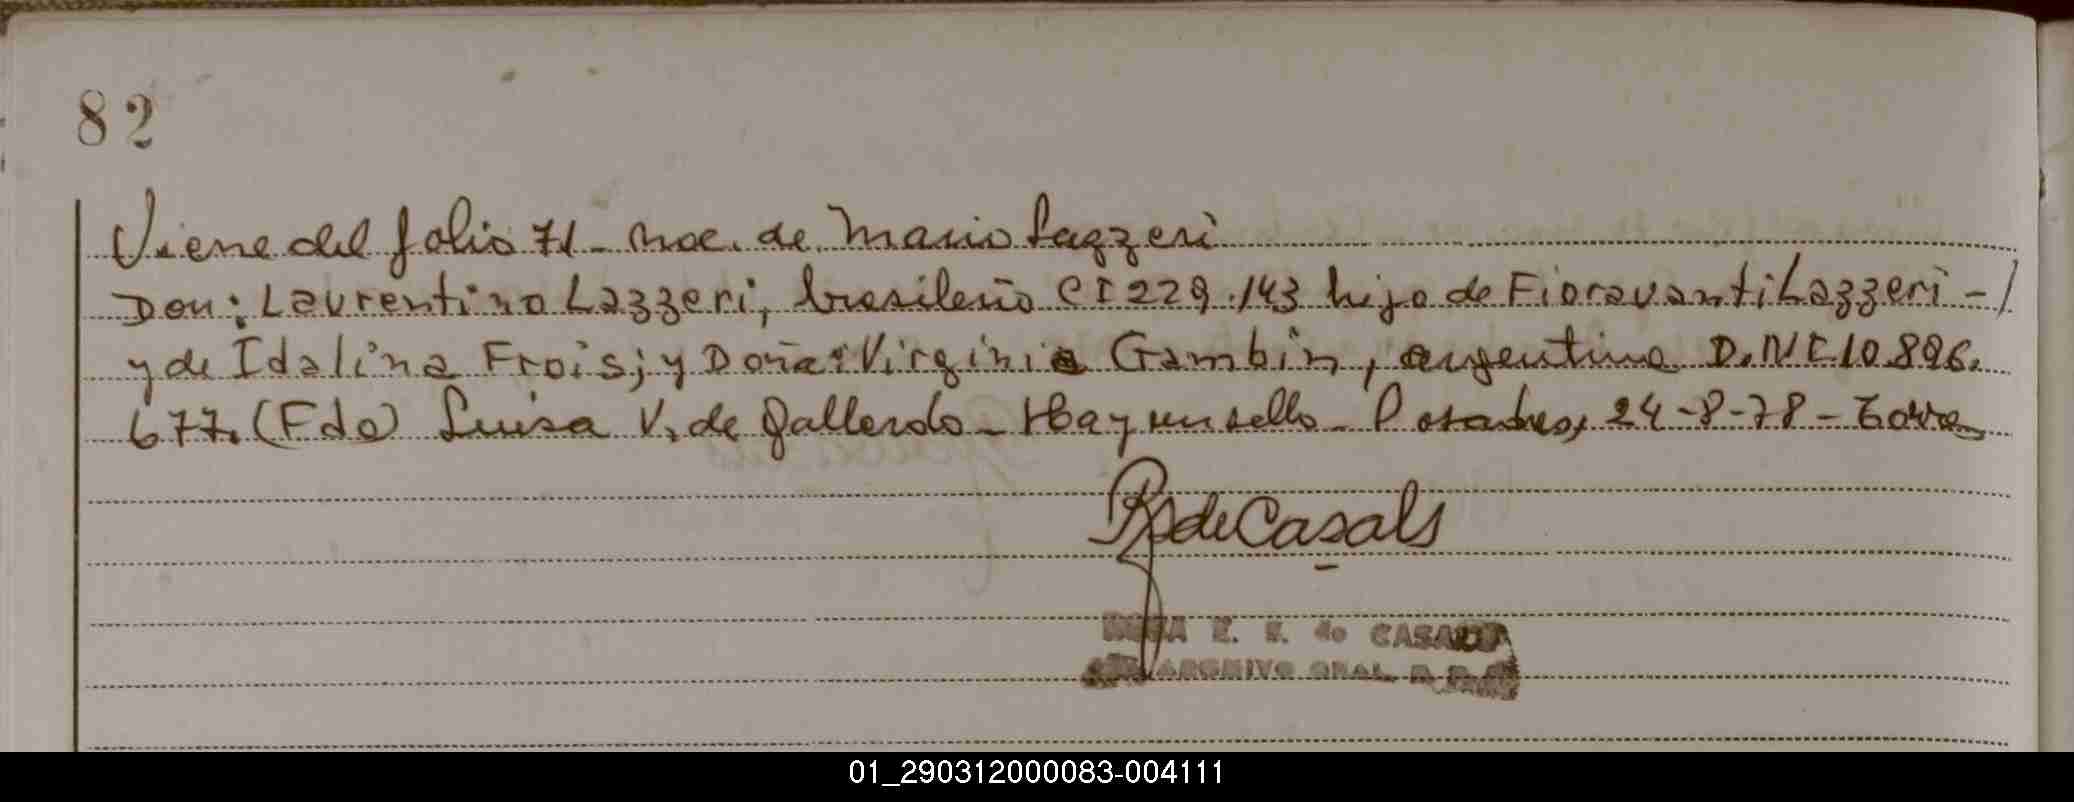 82
Viene del folio 71 - nac. de Mario Lazzeri
Don: Laurentino Lazzeri, brasileño CI 229.143 hijo de Fioravanti Lazzeri - /
y de Idalina Frois; y Doña: Virginia Gambin, argentina D.N.I. 10.896.
677. (Fdo) Luisa V. de Gallardo - Hay un sello - Posadas, 24-8-78 -
de Casals
E. de CASALS
ARCHIVO GRAL.
01_290312000083-004111